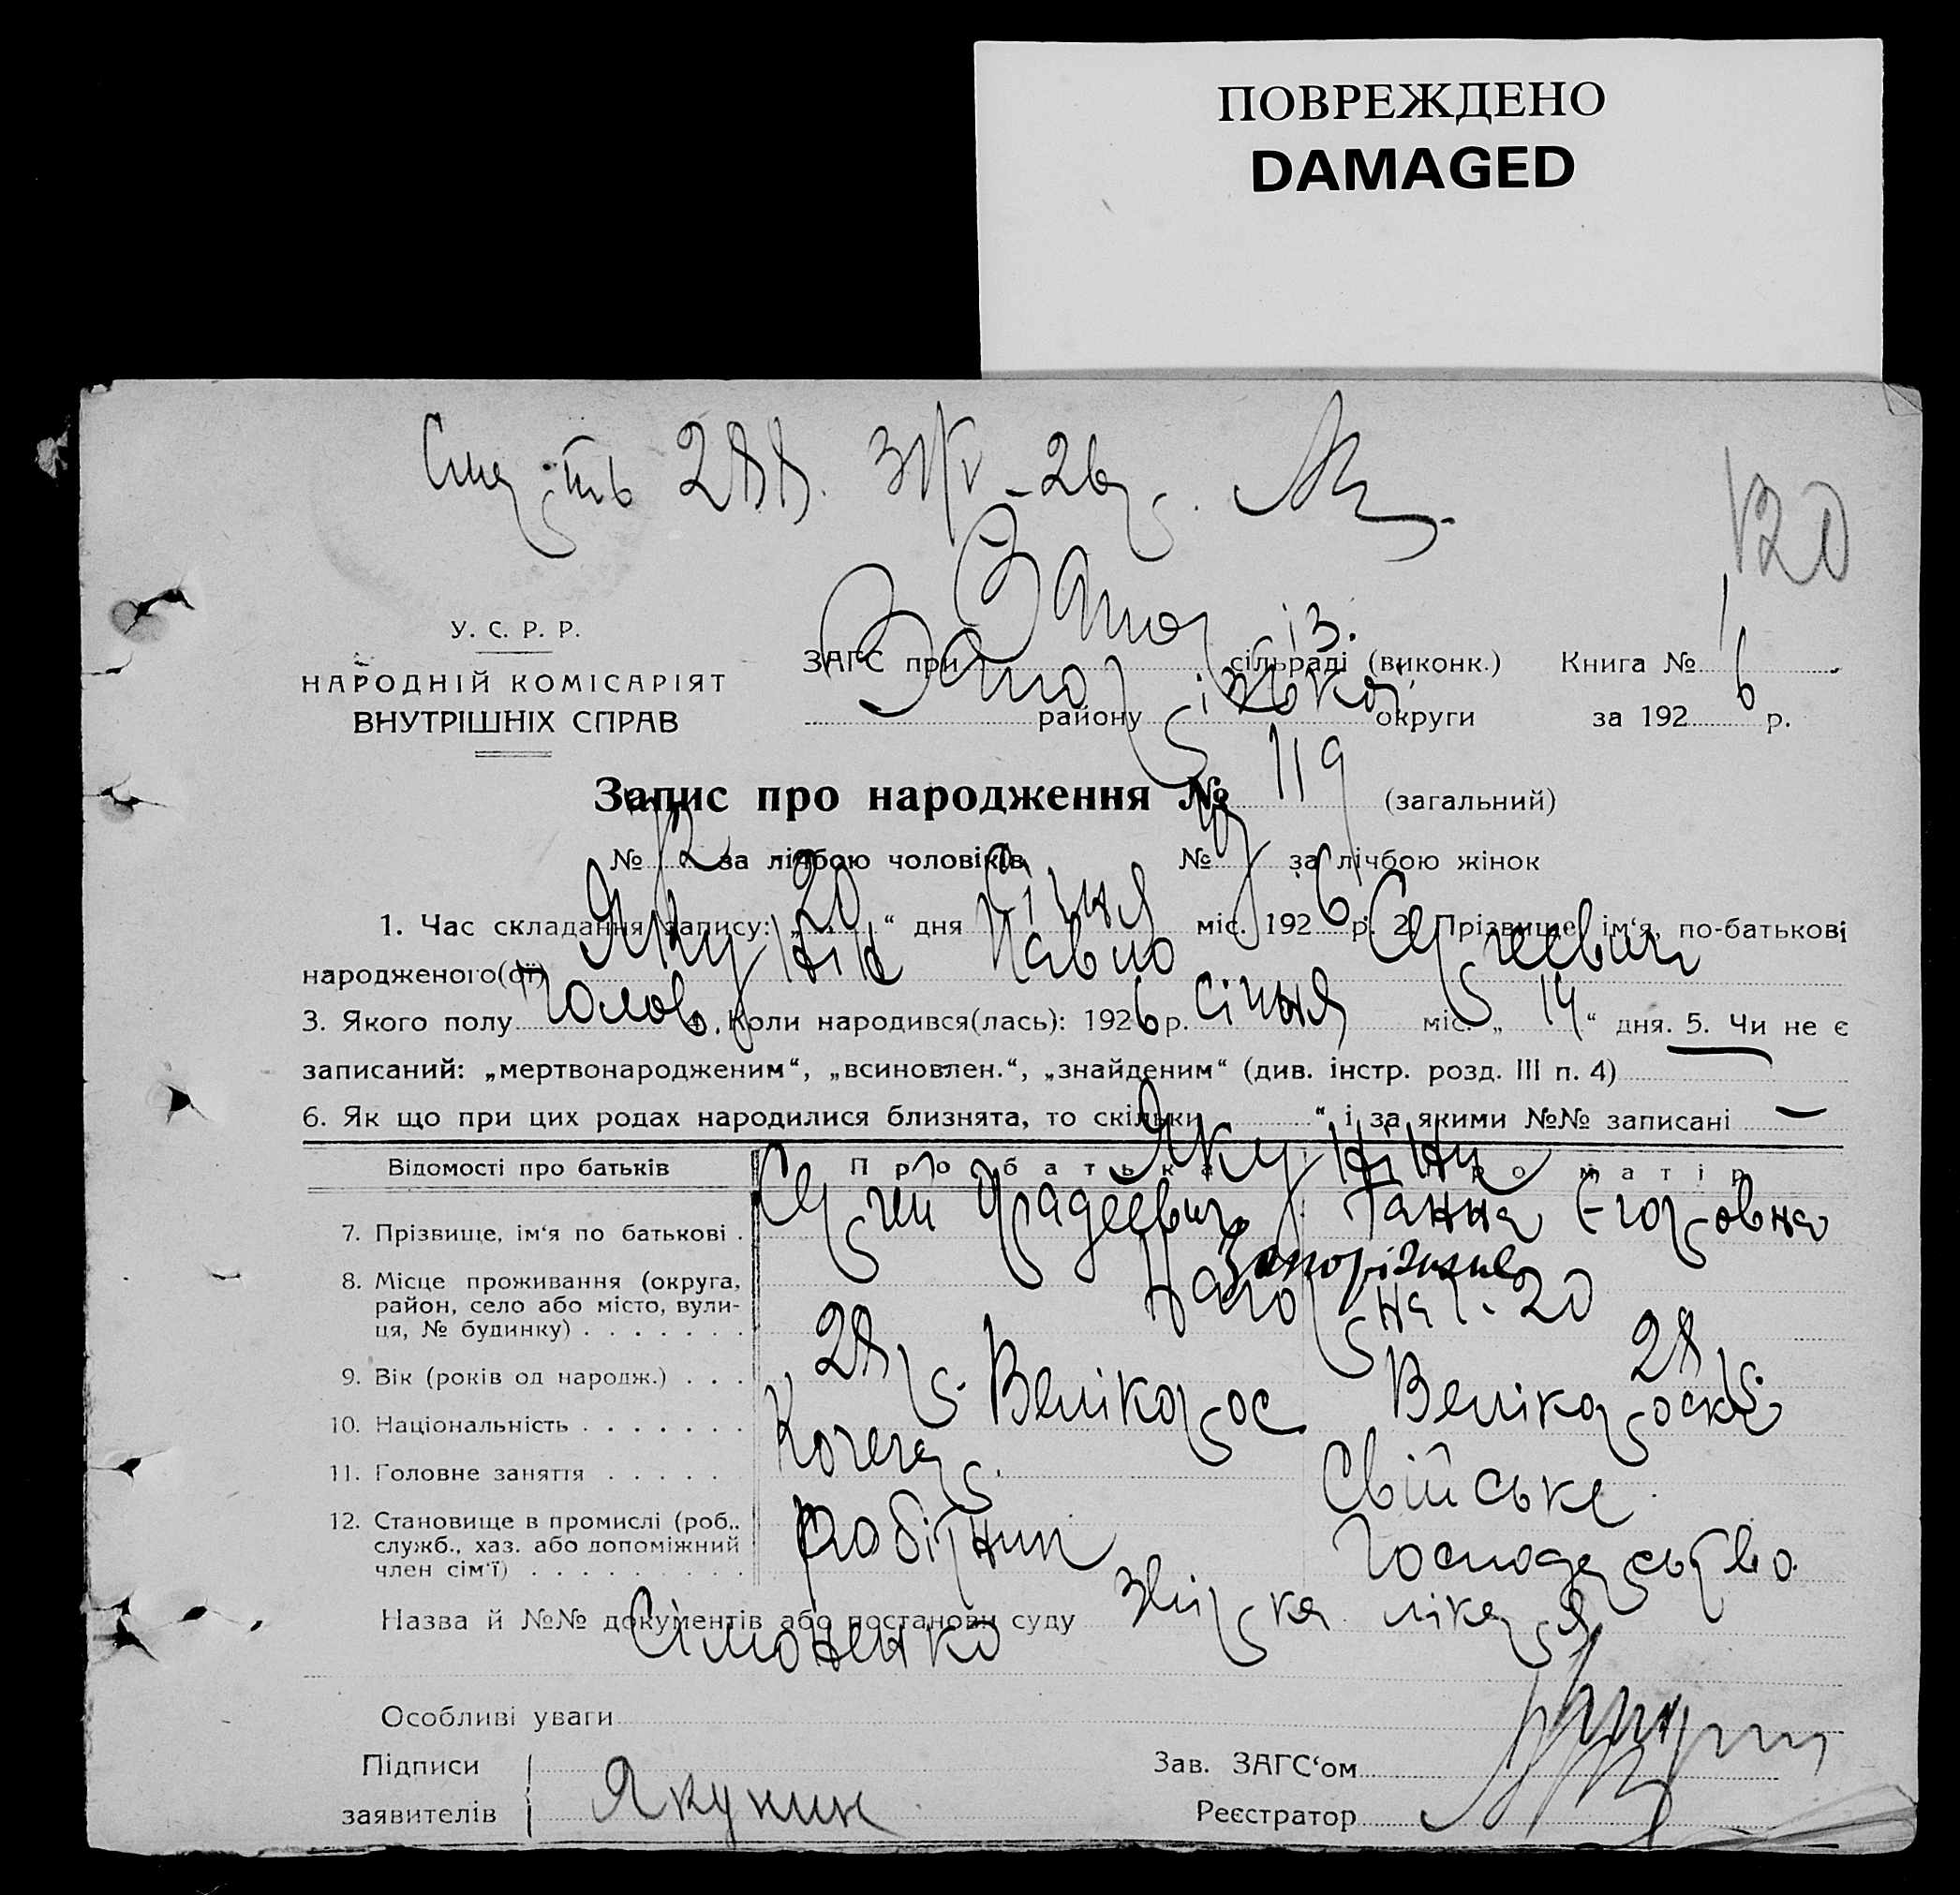 ПОВРЕЖДЕНО
DAMAGED
120
У. С. Р. Р.
НАРОДНІЙ КОМІСАРІЯТ
ВНУТРІШНІХ СПРАВ
ЗАГС при Запоріз. сільраді (виконк.) Книга № 1
Запорізької району округи за 1926 р.
Запис про народження № 119 (загальний)
№ 12 за лічбою чоловіків № за лічбою жінок
1. Час складання запису: „20“ дня Січня міс. 1926 р. 2. Прізвище, ім‘я, по-батькові
народженого(ої) Якунін Павло Сергеевич
3. Якого полу чолов. 4. Коли народився(лась): 1926 р. Січня міс. „14“ дня. 5. Чи не є
записаний: „мертвонародженим“, „всиновлен.“, „знайденим“ (див. інстр. розд. III п. 4)
6. Як що при цих родах народилися близнята, то скільки “ і за якими №№ записані —
Відомості про батьків Про батька Про матір
Якуніни
7. Прізвище, ім‘я по батькові . Сергій Фадеевич Ганна Егоровна
8. Місце проживання (округа, район, село або місто, вулиця, № будинку) . . . . . . . Запоріжжє
Нагорна 1. 20
9. Вік (років од народж.) . . . 28 р. 28 р.
10. Національність . . . . . . . Велікорос Велікороска
11. Головне заняття . . . . . Кочегар. Свійське
12. Становище в промислі (роб., служб., хаз. або допоміжний член сім‘ї) . . . . . . . . . робітник господарство.
Назва й №№ документів або постанови суду лікаря
Сімоненко
Особливі уваги
Підписи
заявителів Якунин
Зав. ЗАГС‘ом
Реєстратор